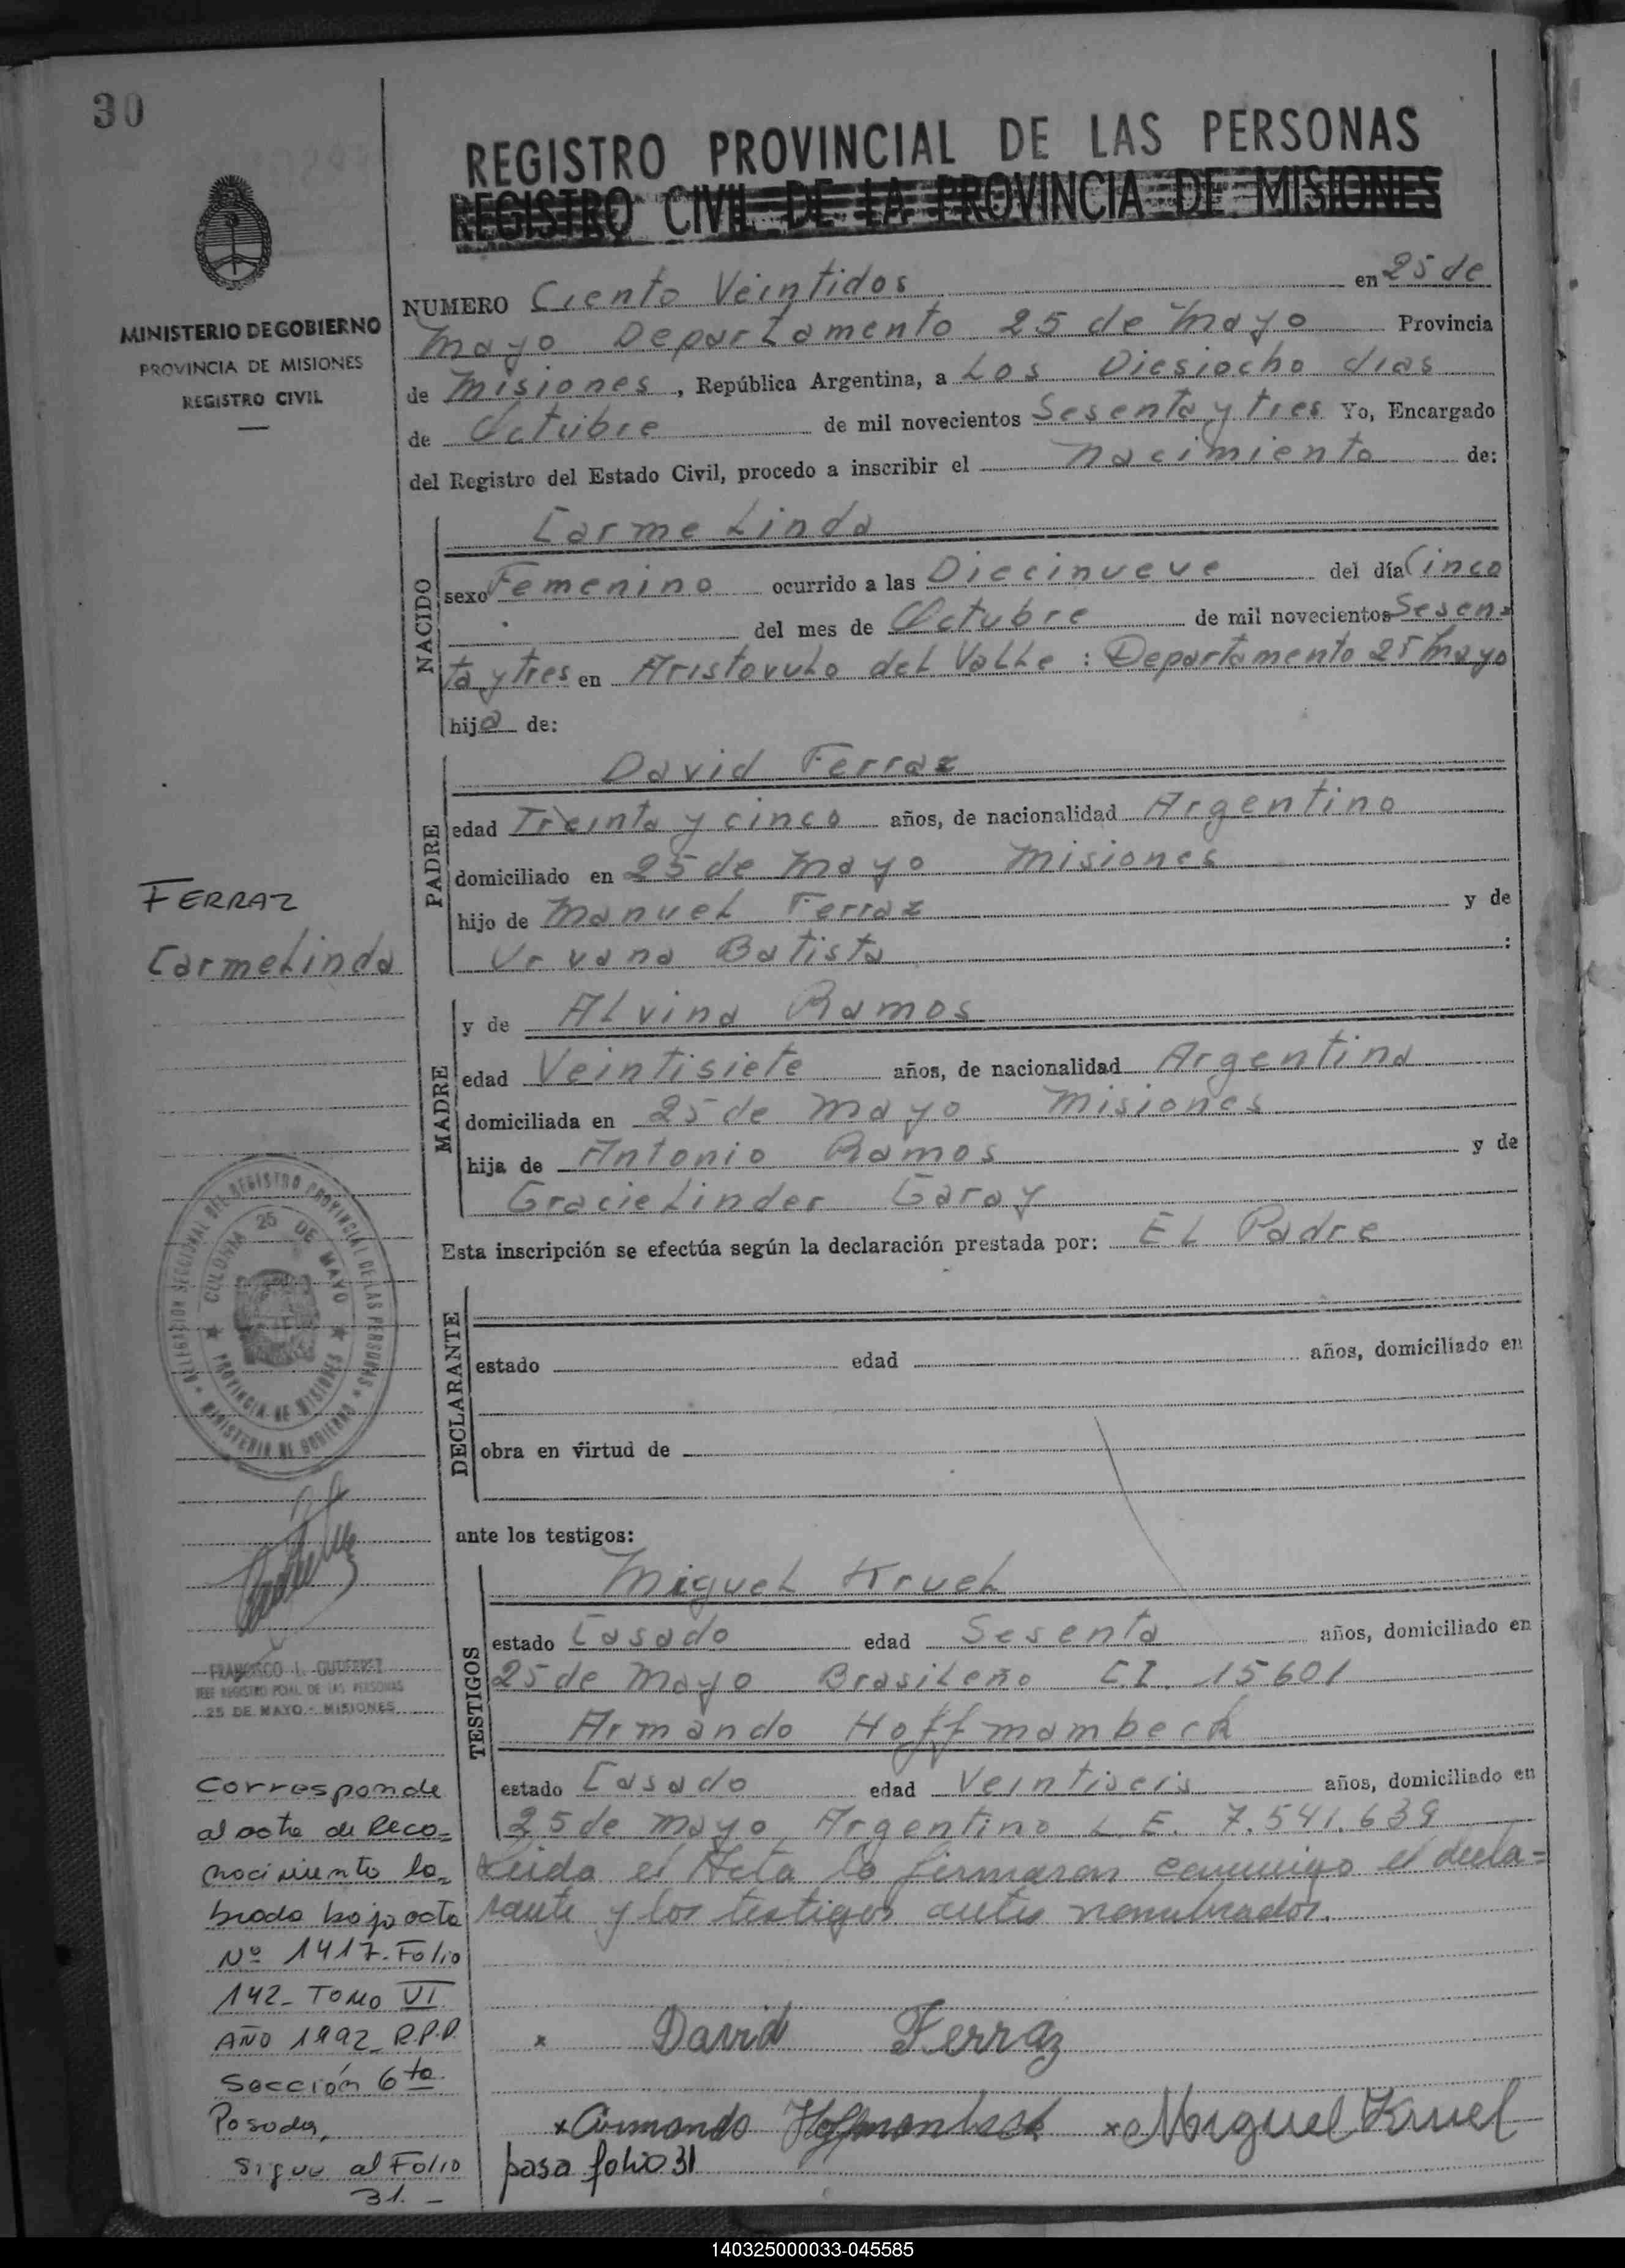 30
REGISTRO PROVINCIAL DE LAS PERSONAS
REGISTRO CIVIL DE LA PROVINCIA DE MISIONES
MINISTERIO DE GOBIERNO
PROVINCIA DE MISIONES
REGISTRO CIVIL
NUMERO Ciento Veintidos en 25 de
Mayo Departamento 25 de Mayo Provincia
de Misiones, República Argentina, a Los Diesiocho dias
de Octubre de mil novecientos Sesenta y tres Yo, Encargado
del Registro del Estado Civil, procedo a inscribir el nacimiento de:
NACIDO
CarmeLinda
sexo Femenino ocurrido a las Diecinueve del día Cinco
del mes de Octubre de mil novecientos Sesen=
ta y tres en AristovuLo del VaLLe : Departamento 25 Mayo
hija de:
PADRE
David Ferraz
edad Treinta y cinco años, de nacionalidad Argentino
domiciliado en 25 de Mayo Misiones
hijo de ManueL Ferraz y de
Urvana Batista :
FERRAZ
CarmeLinda
MADRE
y de ALvina Ramos
edad Veintisiete años, de nacionalidad Argentina
domiciliada en 25 de Mayo Misiones
hija de Antonio Ramos y de
GracieLinder Garay
Esta inscripción se efectúa según la declaración prestada por: EL Padre
DECLARANTE
estado edad años, domiciliado en
obra en virtud de
DELEGACION SECCIONAL DEL REGISTRO PROVINCIAL DE LAS PERSONAS
MINISTERIO DE GOBIERNO
COLONIA 25 DE MAYO
PROVINCIA DE MISIONES
ante los testigos:
TESTIGOS
MigueL KrueL
estado Casado edad Sesenta años, domiciliado en
25 de Mayo BrasiLeño C.I. 15601
Armando Hoffmambeck
estado Casado edad Veintiseis años, domiciliado en
25 de Mayo Argentino L E. 7.541.639
Leida el Acta la firmaron conmigo el decla=
rante y los testigos antes nombrados.
FRANCISCO L. GUTIERREZ
JEFE REGISTRO PCIAL. DE LAS PERSONAS
25 DE MAYO - MISIONES
Corresponde
al acta de Reco=
nocimiento la=
brada bajo acta
Nº 1417. Folio
142 - TOMO VI
AÑO 1992 R.P.P.
Sección 6ta
Posadas
Sigue al Folio
31. -
x David Ferraz
x Armando Hoffmanbeck x Miguel Kruel
pasa folio 31
140325000033-045585